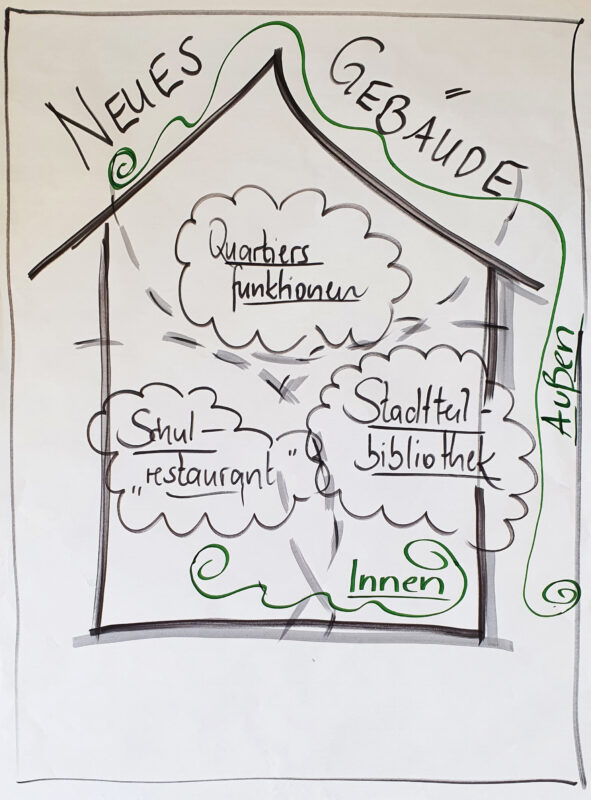 NEUES GEBÄUDE
Quartiers
funktionen
Schul-
"restaurant"
Stadtteil-
bibliothek
Außen
Innen